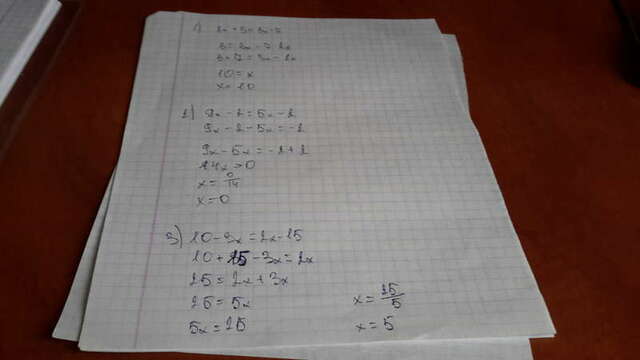 1) 2x+3=3x-7
3=3x-7-2x
3+7=3x-2x
10=x
x=10
2) 9x-2=5x-2
9x-2-5x=-2
9x-5x=-2+2
14x=0
x=0/14
x=0
3) 10-3x=2x-15
10+15-3x=2x
25=2x+3x
25=5x
5x=25
x=25/5
x=5